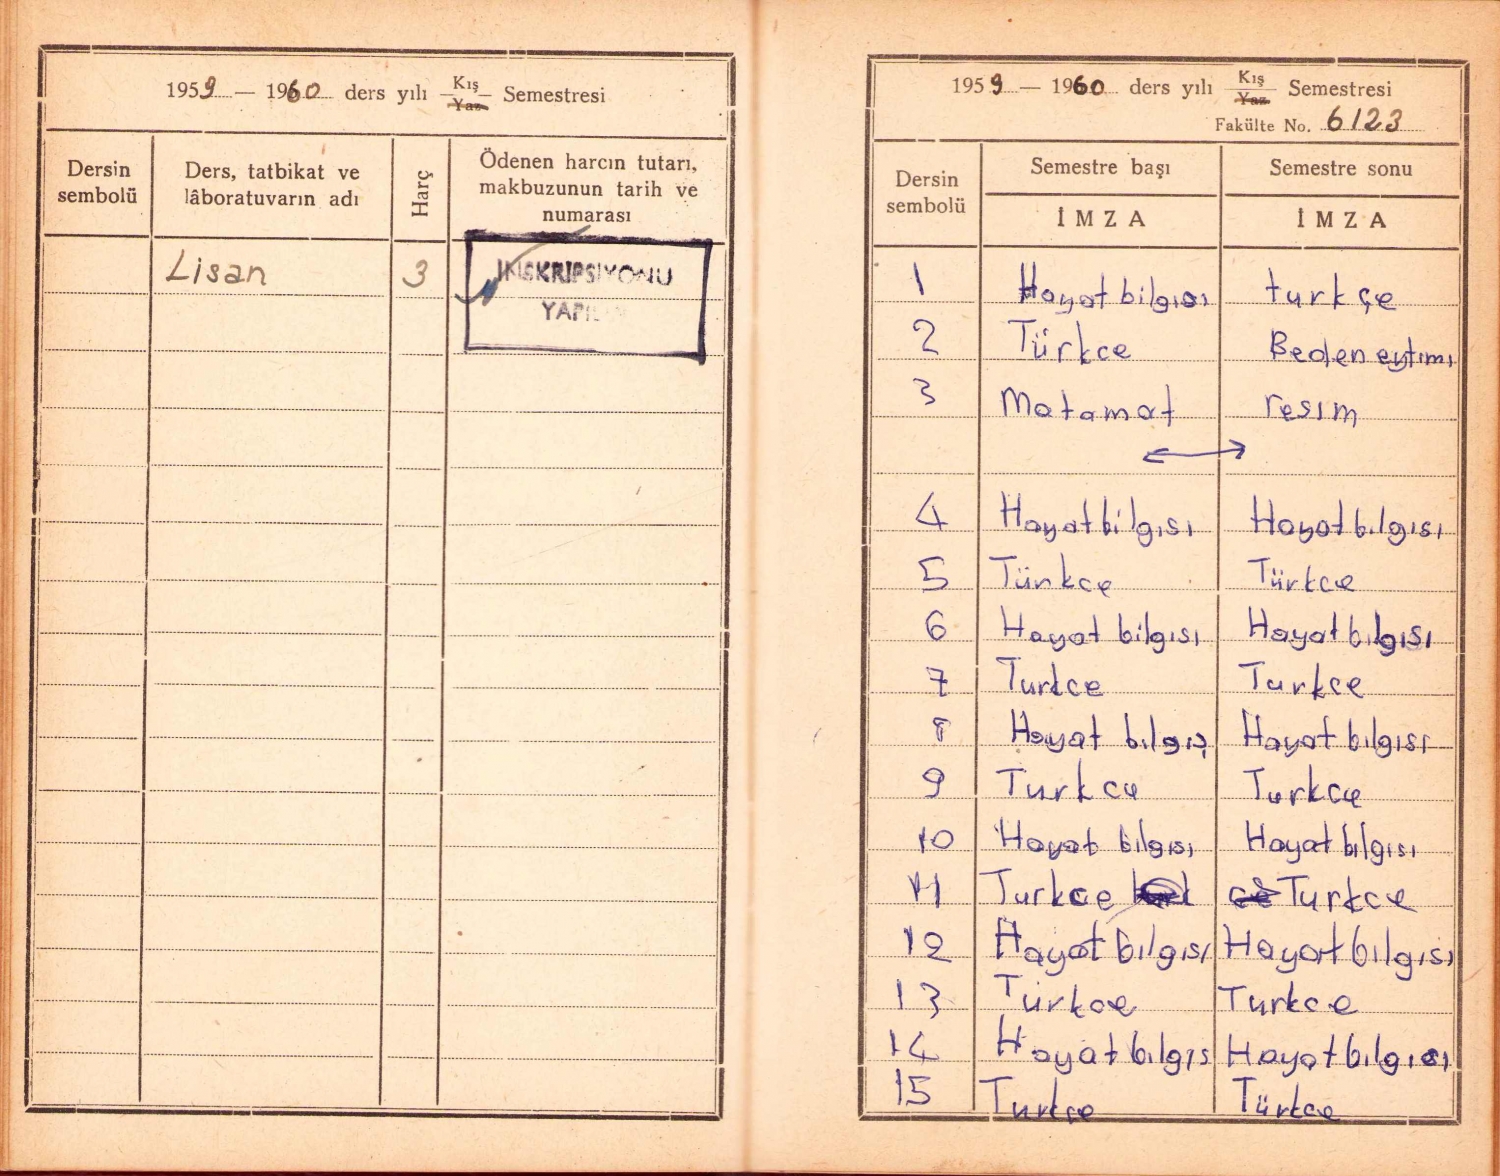 1959 — 1960 ders yılı Kış Yaz Semestresi
Dersin sembolü
Ders, tatbikat ve lâboratuvarın adı
Harç
Ödenen harcın tutarı, makbuzunun tarih ve numarası
Lisan 3
İNSKRIPSİYONU
1959 — 1960 ders yılı Kış Yaz Semestresi
Fakülte No. 6123
Dersin sembolü
Semestre başı Semestre sonu
İMZA İMZA
1 Hayat bilgısı turkçe
2 Türkce Beden eytımı
3 Matamat resım
4 Hayat bilgısı Hayat bılgısı
5 Türkce Türkce
6 Hayat bilgısı Hayat bılgısı
7 Turkce Turkce
8 Hayat bılgıs Hayat bılgısı
9 Turkce Turkce
10 Hayat bılgısı Hayat bılgısı
11 Turkce Turkce
12 Hayat bılgısı Hayat bılgısı
13 Türkce Turkce
14 Hayat bılgıs Hayat bılgısı
15 Turkçe Türkce